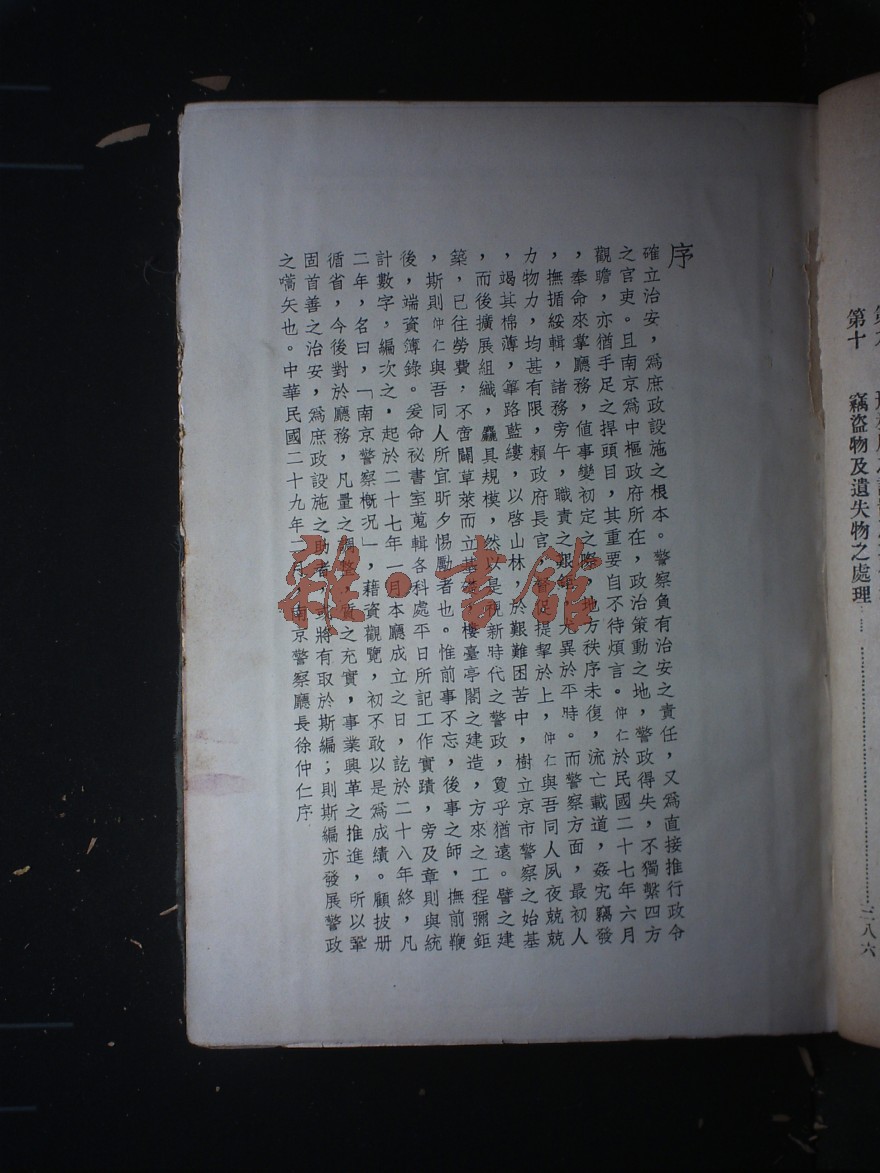 第十　竊盜物及遺失物之處理……三八六
序
確立治安，爲庶政設施之根本。警察負有治安之責任，又爲直接推行政令
之官吏。且南京爲中樞政府所在，政治策動之地，警政得失，不獨繫四方
觀瞻，亦猶手足之捍頭目，其重要自不待煩言。仲仁於民國二十七年六月
，奉命來掌廳務，値事變初定之際，地方秩序未復，流亡載道，姦宄竊發
，撫揗綏輯，諸務旁午，職責之艱鉅，尤異於平時。而警察方面，最初人
力物力，均甚有限，賴政府長官，督促提挈於上，仲仁與吾同人夙夜兢兢
，竭其棉薄，篳路藍縷，以啓山林，於艱難困苦中，樹立京市警察之始基
，而後擴展組織，麤具規模，然以是視新時代之警政，敻乎猶遠。譬之建
築，已往勞費，不啻闢草萊而立基礎，樓臺亭閣之建造，方來之工程彌鉅
，斯則仲仁與吾同人所宜昕夕惕勵者也。惟前事不忘，後事之師，撫前鞭
後，端資簿錄。爰命祕書室蒐輯各科處平日所記工作實蹟，旁及章則與統
計數字，編次之，起於二十七年一月本廳成立之日，訖於二十八年終，凡
二年，名曰，「南京警察概況」，藉資觀覽，初不敢以是爲成績。顧披册
循省，今後對於廳務，凡量之調整，質之充實，事業興革之推進，所以鞏
固首善之治安，爲庶政設施之助者，或將有取於斯編；則斯編亦發展警政
之嚆矢也。中華民國二十九年一月，南京警察廳長徐仲仁序
雜·書館